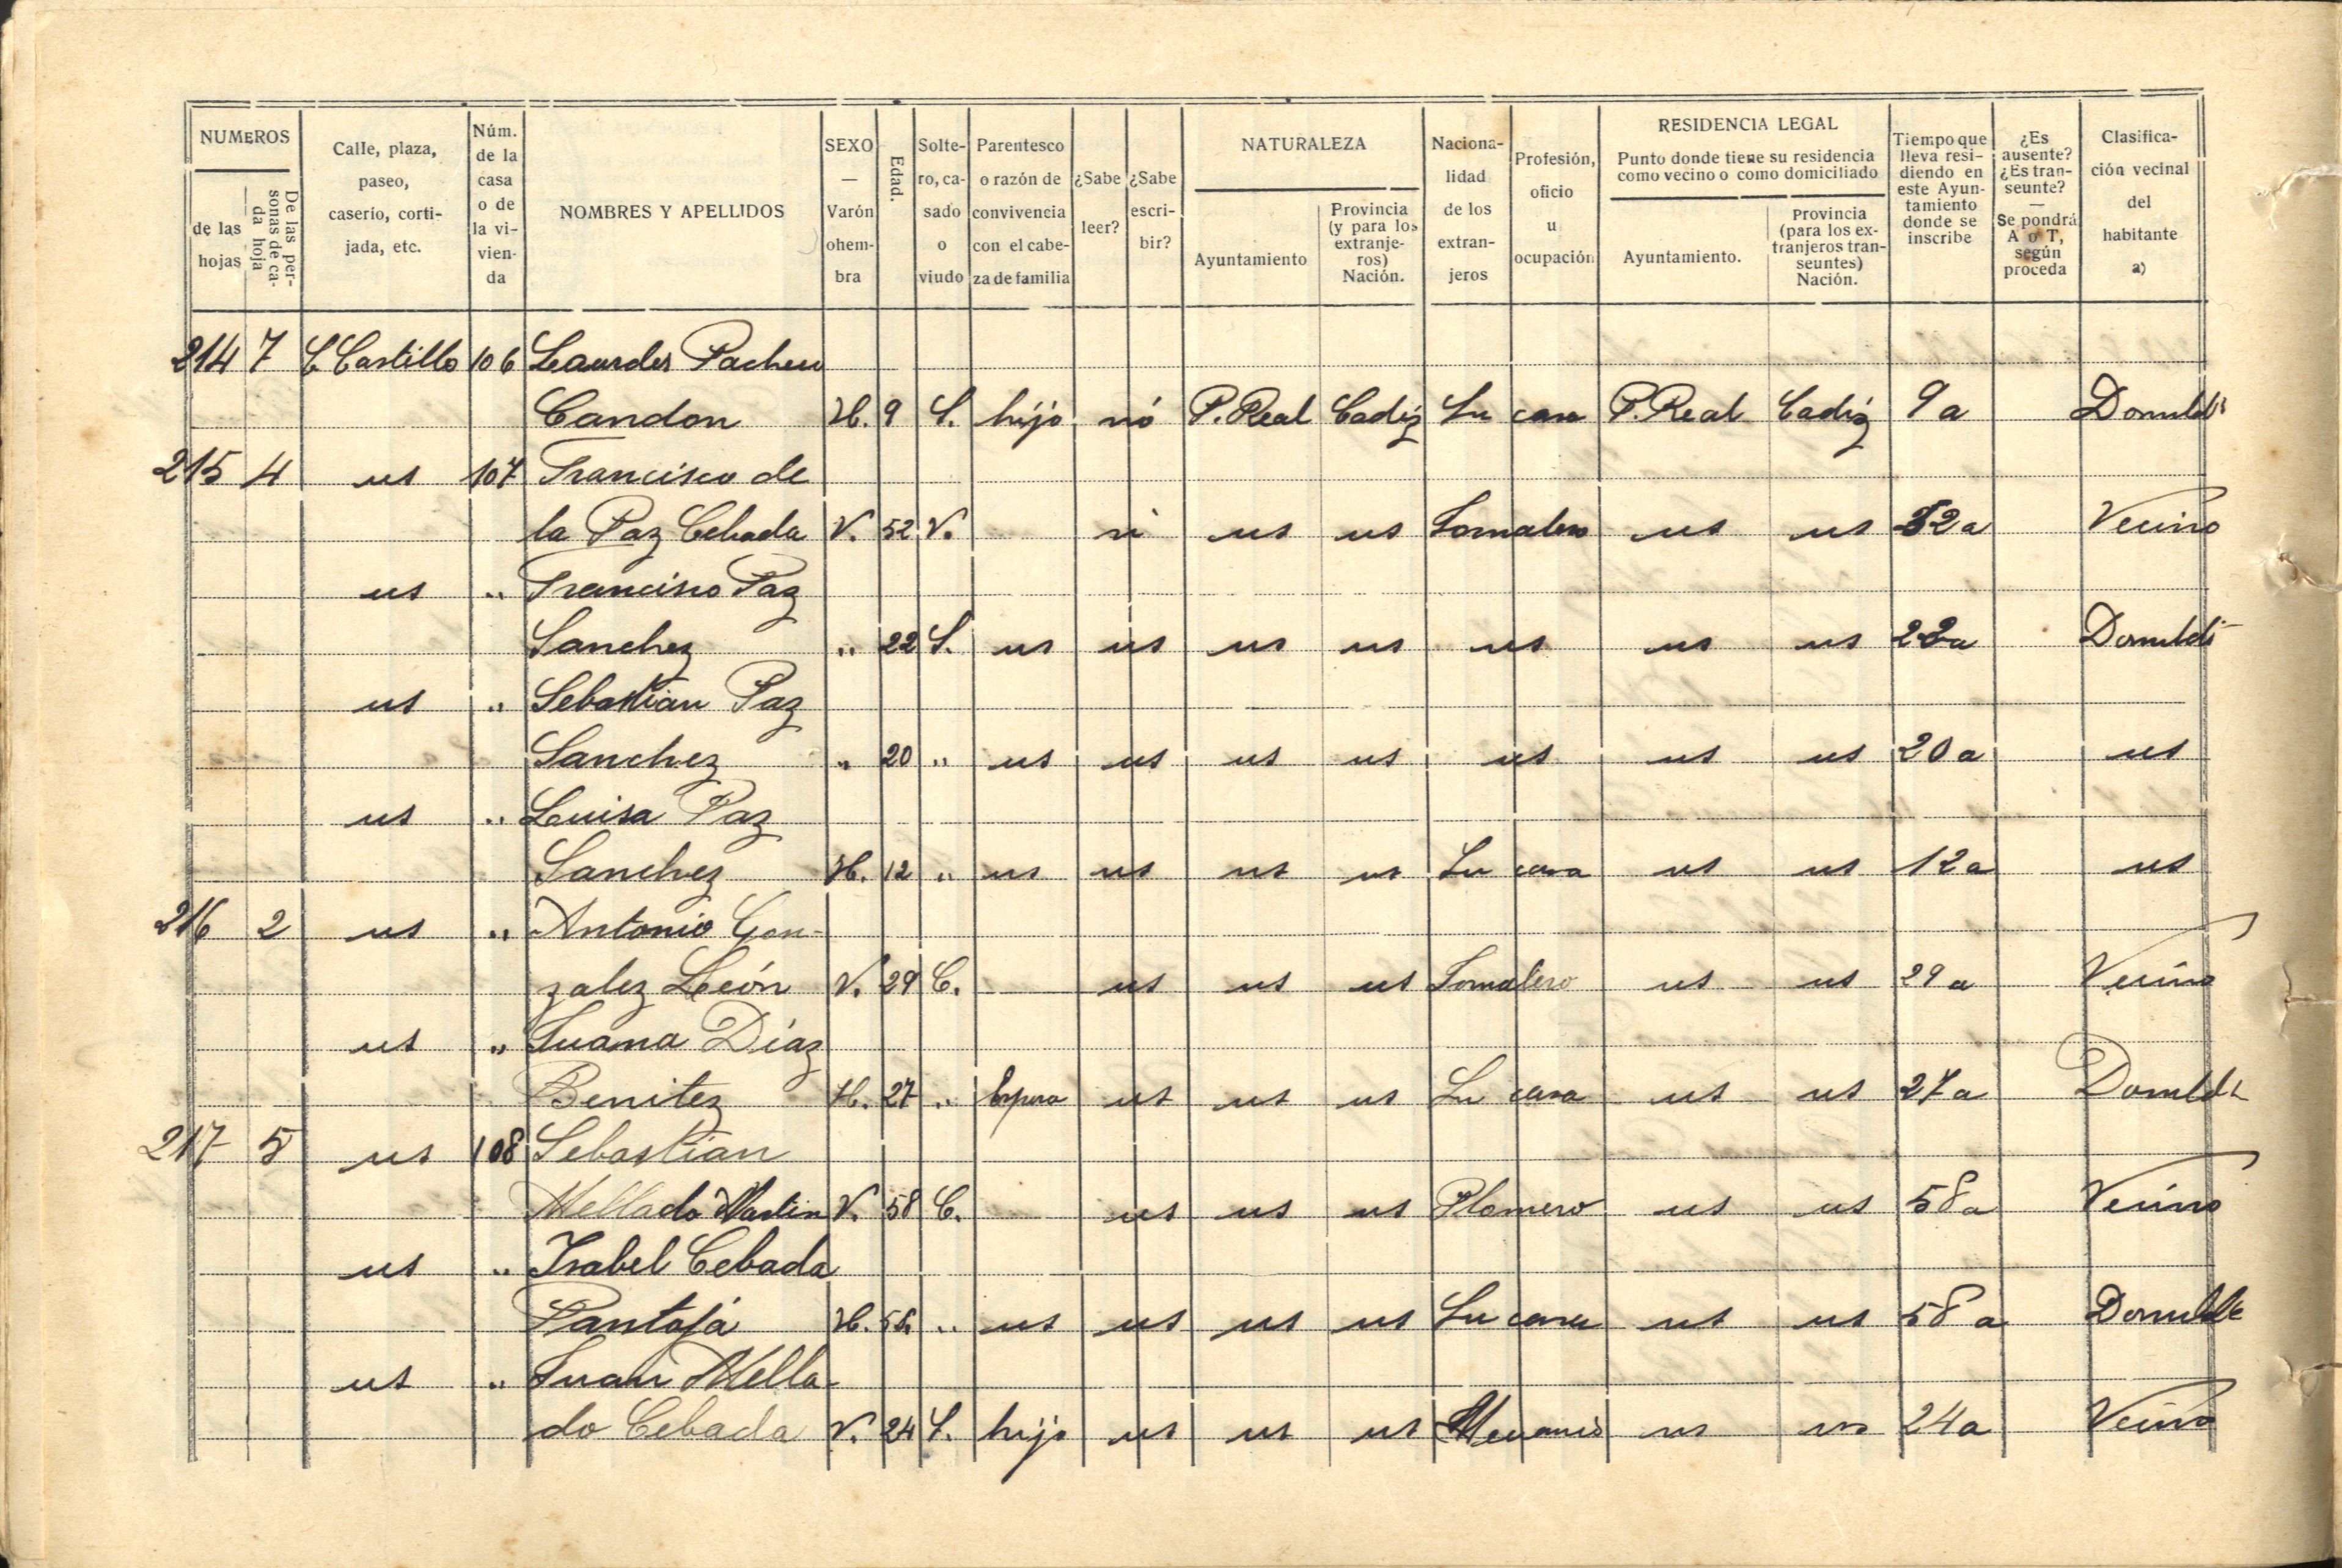 NUMEROS
de las hojas
De las personas de cada hoja
Calle, plaza, paseo, caserío, cortijada, etc.
Núm. de la casa o de la vivienda
NOMBRES Y APELLIDOS
SEXO — Varón o hembra
Edad.
Soltero, casado o viudo
Parentesco o razón de convivencia con el cabeza de familia
¿Sabe leer?
¿Sabe escribir?
NATURALEZA
Ayuntamiento
Provincia (y para los extranjeros) Nación.
Nacionalidad de los extranjeros
Profesión, oficio u ocupación
RESIDENCIA LEGAL
Punto donde tiene su residencia como vecino o como domiciliado
Ayuntamiento.
Provincia (para los extranjeros transeuntes) Nación.
Tiempo que lleva residiendo en este Ayuntamiento donde se inscribe
¿Es ausente? ¿Es transeunte? — Se pondrá A o T, según proceda
Clasificación vecinal del habitante a)
214 7 C. Castillo 106 Lourdes Pacheco
Candon H. 9 S. hijo nó P. Real Cadiz Su casa P. Real Cadiz 9 a
215 4 us 107 Francisco de
la Paz Cebada V. 52 V. si us us Jornalero us us 52 a Vecino
us " Francisco Paz
Sanchez " 22 S. us us us us us us us 22 a
us " Sebastian Paz
Sanchez " 20 " us us us us us us us 20 a us
us " Luisa Paz
Sanchez H. 12 " us us us us Su casa us us 12 a us
216 2 us " Antonio Gon-
zalez León V. 29 C. — us us us Jornalero us us 29 a Vecino
us " Juana Díaz
Benitez H. 27 " Esposa us us us Su casa us us 27 a
217 5 us 108 Sebastian
Mellado Martin V. 58 C. us us us Plomero us us 58 a Vecino
us " Isabel Cebada
Pantoja H. 58 " us us us us Su casa us us 58 a
us " Juan Mella-
do Cebada V. 24 S. hijo us us us us us 24 a Vecino